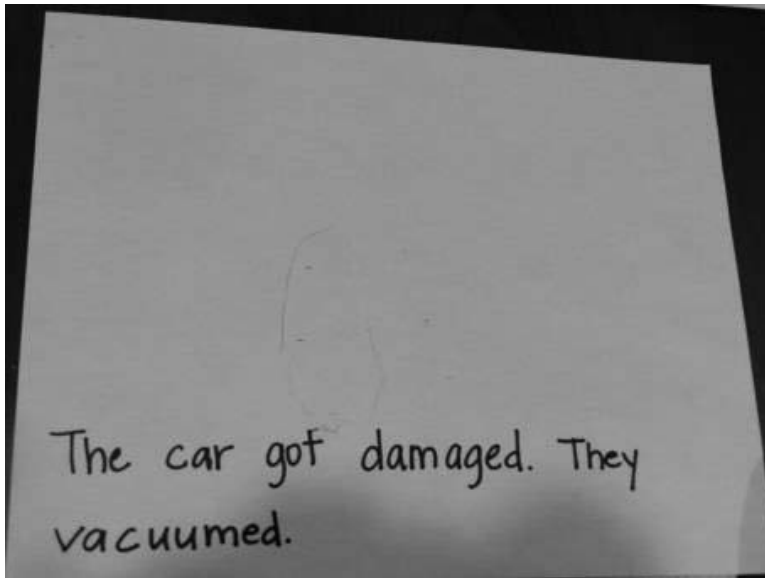 The car got damaged. They
vacuumed.